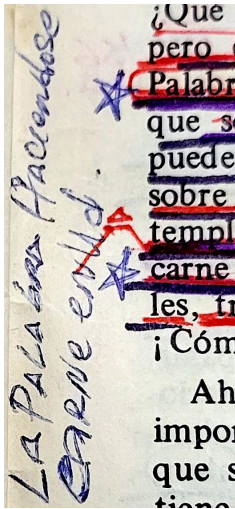 La Palabra Haciendose
carne en Ud
¿Que
pero
Palabr
que s
puede
sobre
templ
carne
les, tr
¡Cóm
Ah
impor
que s
tiene